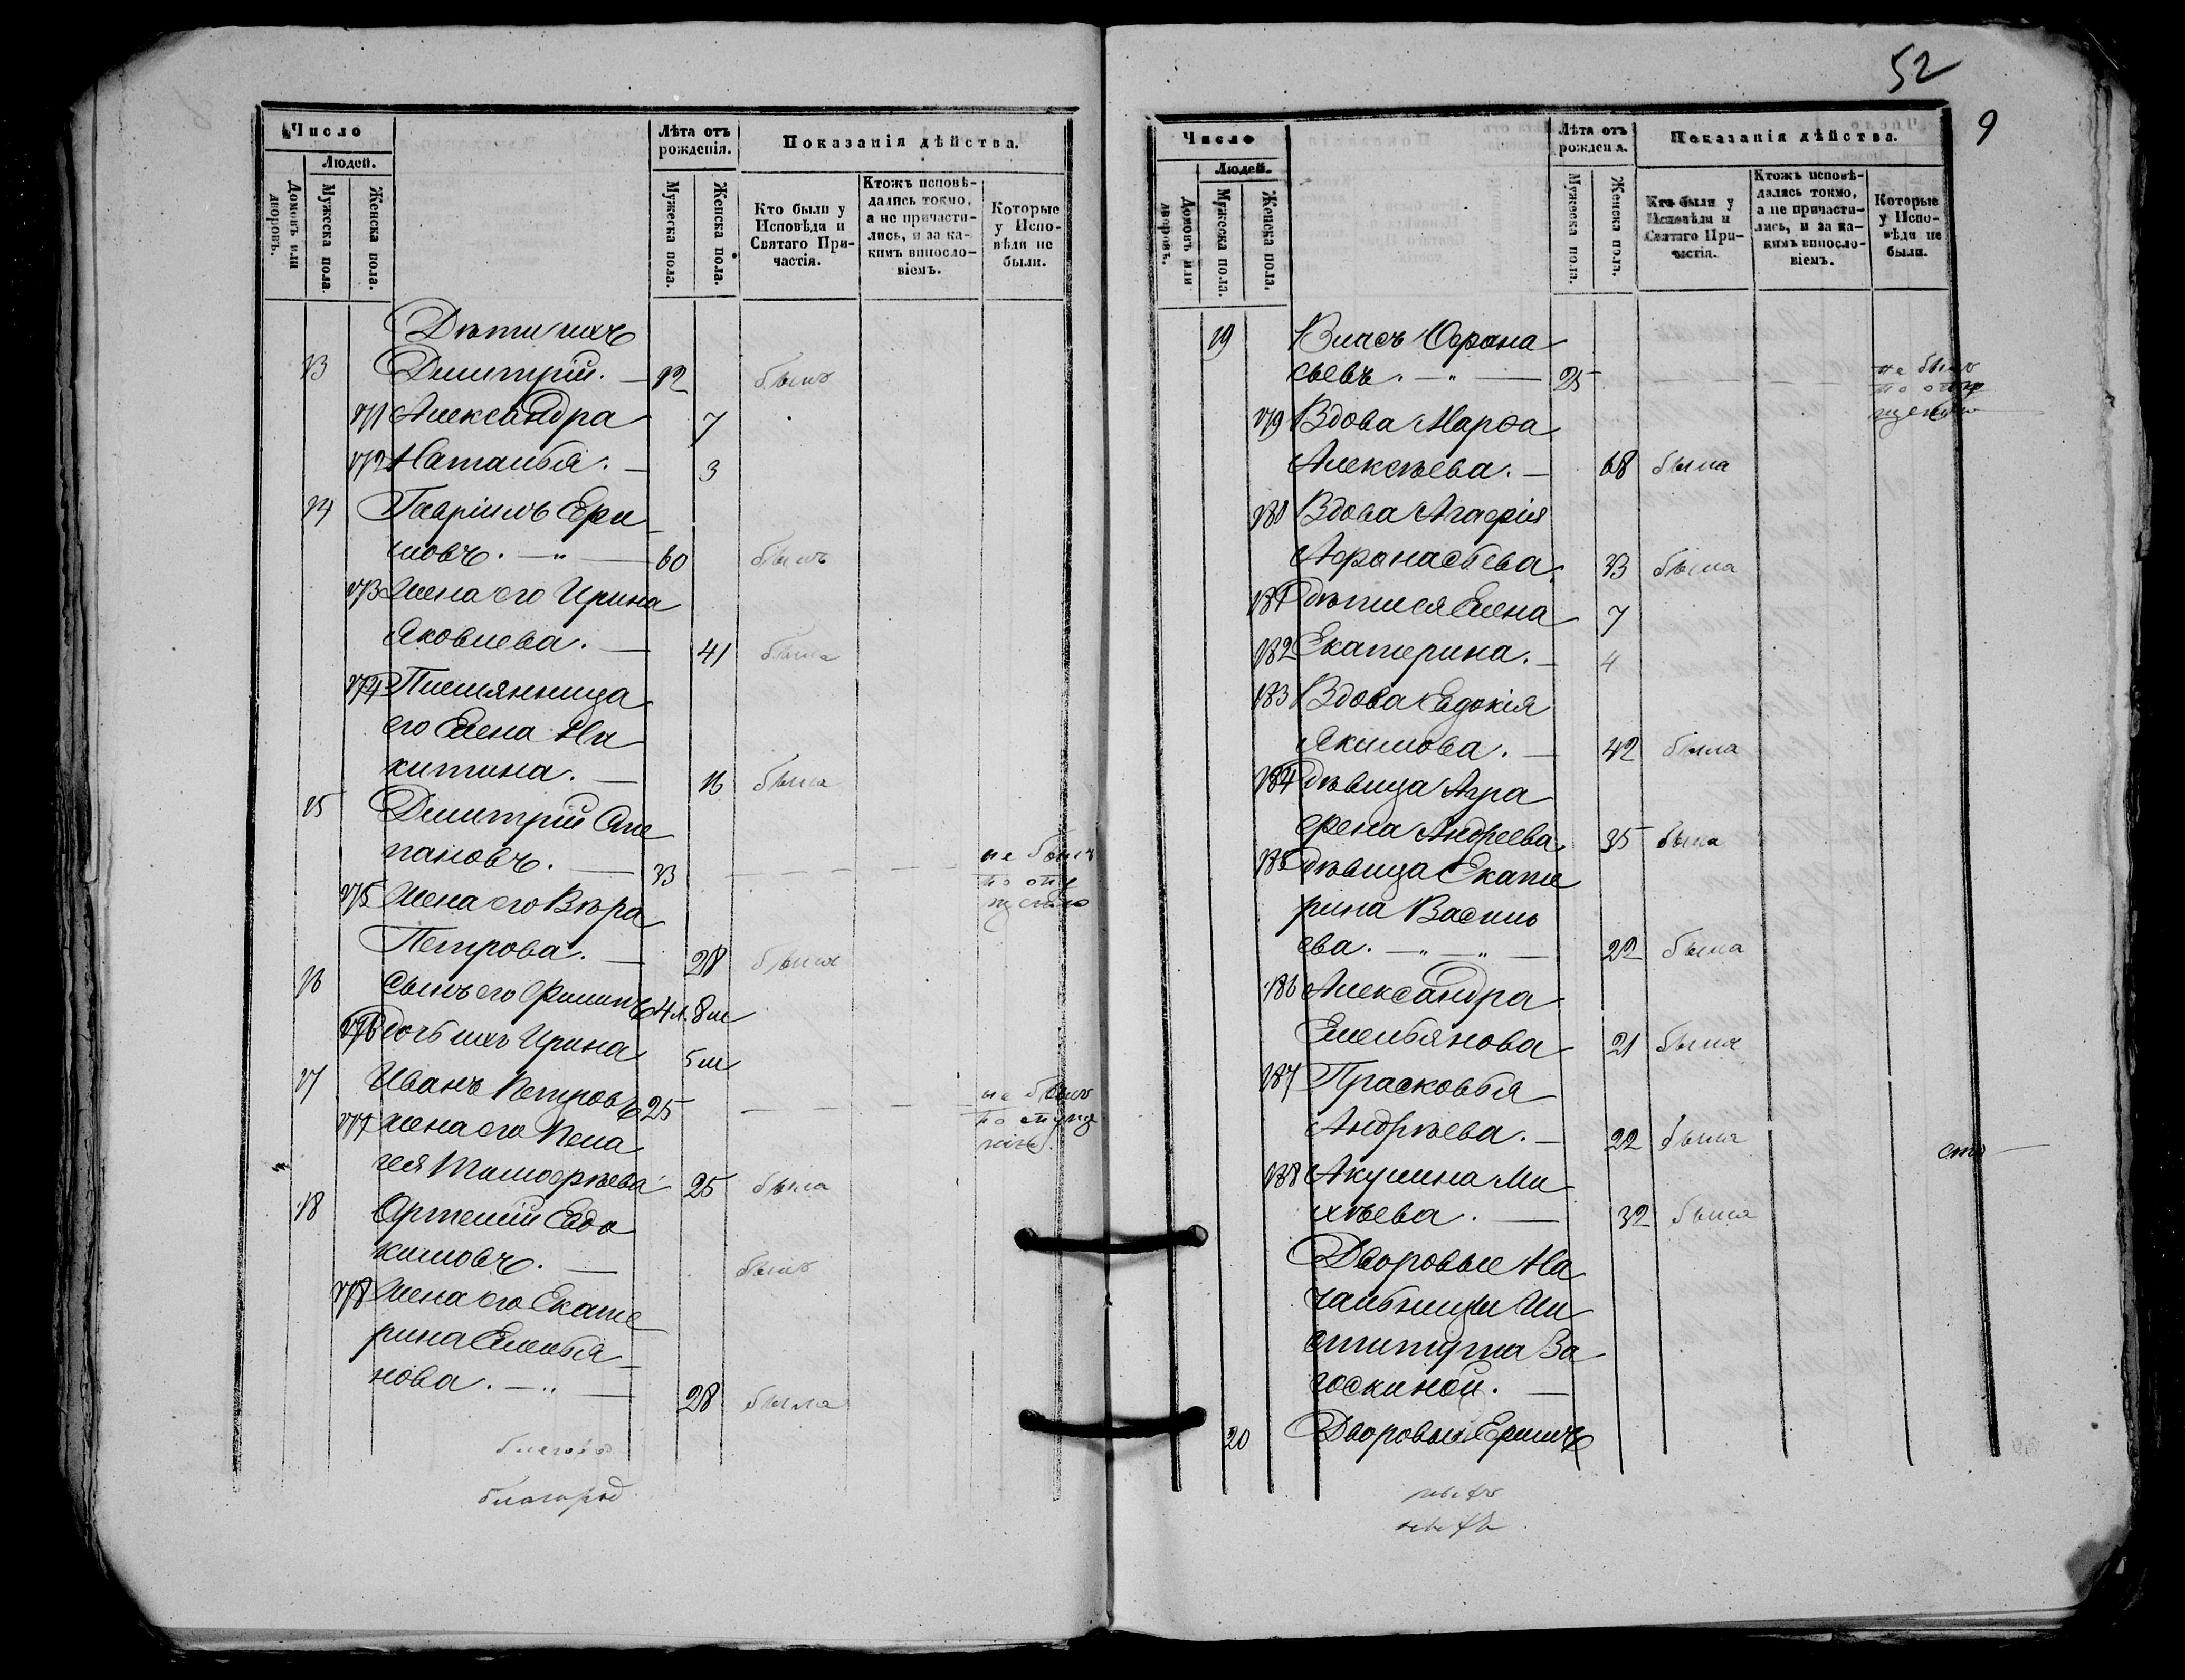 52
9
Число
Людей.
Домовъ или дворовъ.
Мужеска пола.
Женска пола.
Лѣта отъ рожденія.
Мужеска пола.
Женска пола.
Показанія дѣйства.
Кто были у Исповѣди и Святаго Причастія.
Ктожъ исповѣдались токмо, а не причастились, и за какимъ винословіемъ.
Которые у Исповѣди не были.
Дѣти ихъ
13 Димитрій. — 12 былъ
171 Александра 7
172 Наталья. — 3
14 Гавріилъ Ери
мовъ. — " — 60 былъ
173 Жена его Ирина
Яковлева. — 41 была
174 Племянница
его Елена Ни
китина. — 16 была
15 Димитрій Сте
пановъ. — 33 — — — — не былъ
по опу
щенію
175 Жена его Вѣра
Петрова. — 28 была
16 Сынъ его Филипъ 4 л. 8 м
176 Дочь ихъ Ирина 5 м
17 Иванъ Петровъ 25 — — — — не былъ
по опуще
нію
177 жена его Пела
гея Тимофѣева 25 была
18 Артемій Евдо
кимовъ. — былъ
178 Жена его Екате
рина Емелья
нова. — " — 28 была
благород
Число
Людей.
Домовъ или дворовъ.
Мужеска пола.
Женска пола.
Лѣта отъ рожденія.
Мужеска пола.
Женска пола.
Показанія дѣйства.
Кто были у Исповѣди и Святаго Причастія.
Ктожъ исповѣдались токмо, а не причастились, и за какимъ винословіемъ.
Которые у Исповѣди не были.
19 Власъ Офана
сьевъ. — " — 25 — — — — не былъ
по опу
щенію
179 Вдова Марѳа
Алексѣева. — 68 была
180 Вдова Агафія
Афанасьева. 33 была
181 дѣти ея Елена 7
182 Екатерина. — 4
183 Вдова Евдокія
Якимова. — 42 была
184 дѣвица Агра
фена Андреева. 35 была
185 дѣвица Екате
рина Василь
ева. — " — " — 22 была
186 Александра
Емельянова 21 была
187 Прасковья
Андрѣева. — 22 была
188 Акулина Ми
хѣева. — 32 была
Дворовые На
чальницы Ин
ститута За
госкиной. —
20 Дворовый Ерим